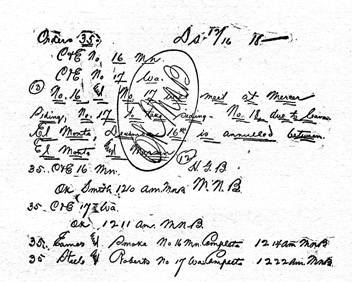 Orders 35. Ds. 12/16
C&E No 16 Mn.
C&E No 17 Wa.
(13) No. 16 & No. 17 will meet at Mercer
Siding, No. 17 take siding. No. 16 due to leave
El Monte, Dec. 16th is annulled between
El Monte & Mercer. (12)
35. C&E 16 Mn. H G B
OK Smith 1210 am MNB MNB
35. C&E 17 Wa.
OK 1211 am. MNB
35. Eames & Smoke No 16 Mn Complete 1214am MNB
35 Steele & Roberts No 17 Wa Complete 1222am MNB